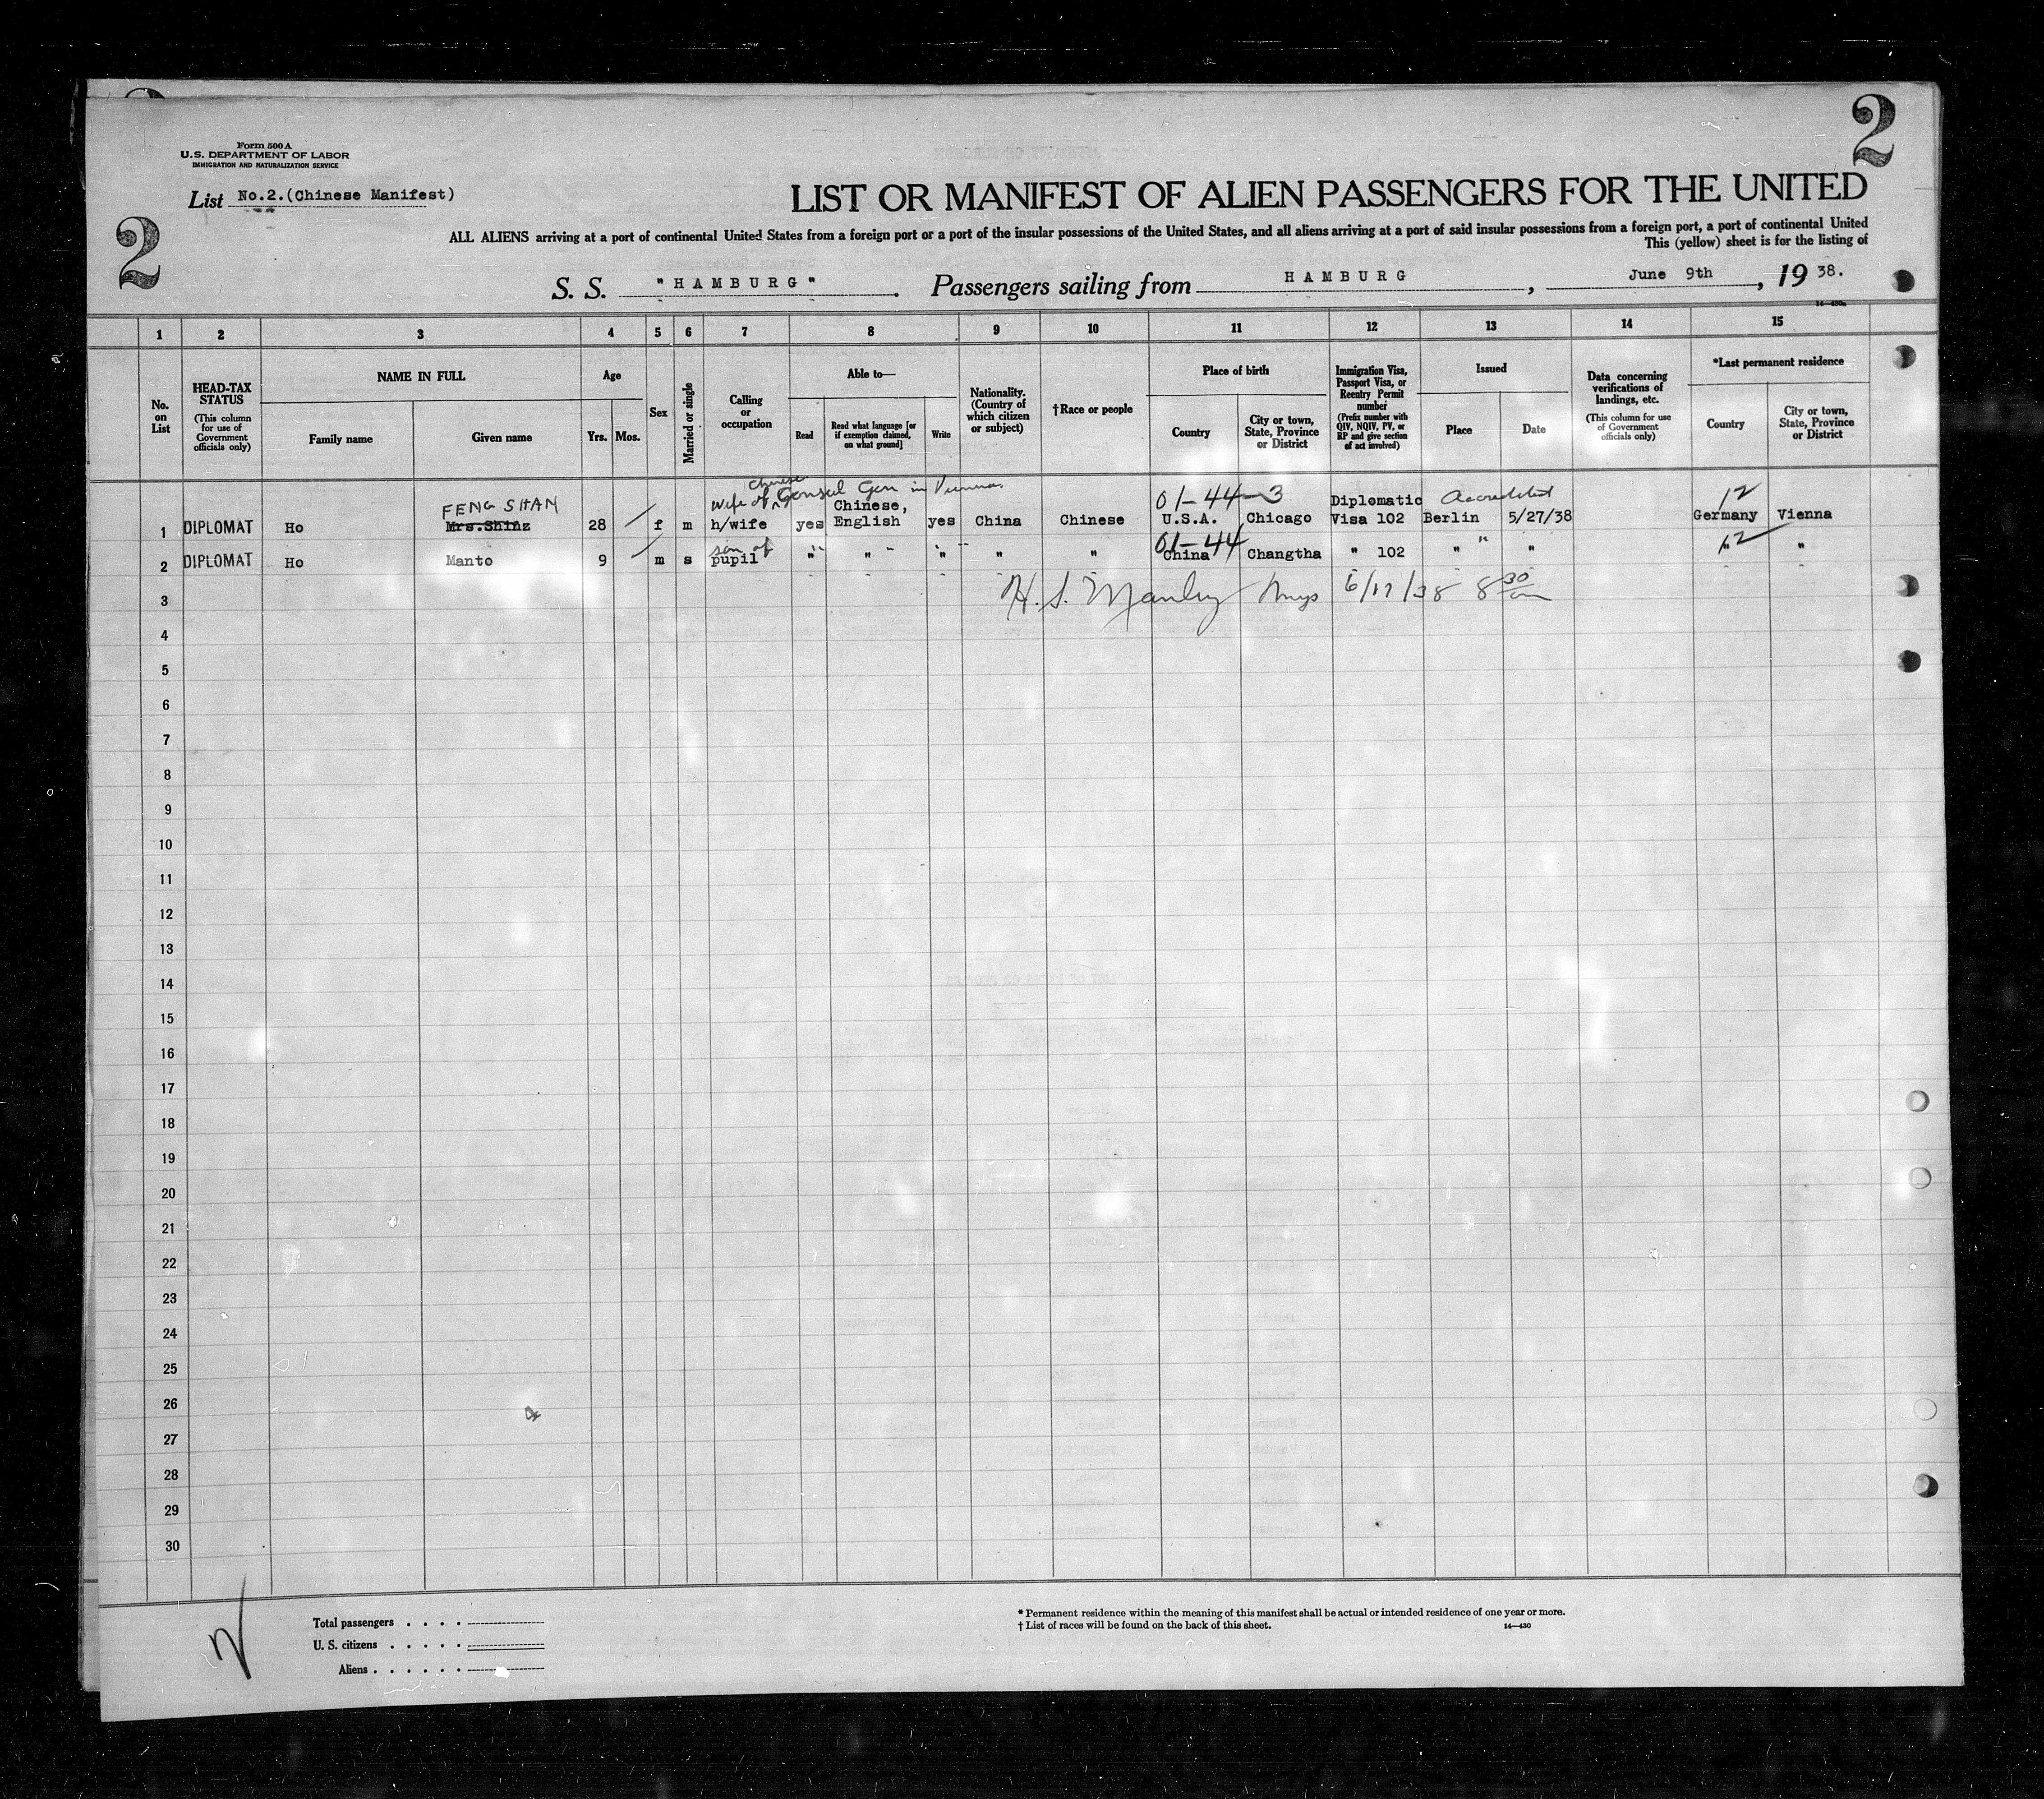 2
2
Form 500 A
U.S. DEPARTMENT OF LABOR
IMMIGRATION AND NATURALIZATION SERVICE
List No.2.(Chinese Manifest)
LIST OR MANIFEST OF ALIEN PASSENGERS FOR THE UNITED
ALL ALIENS arriving at a port of continental United States from a foreign port or a port of the insular possessions of the United States, and all aliens arriving at a port of said insular possessions from a foreign port, a port of continental United
This (yellow) sheet is for the listing of
S. S. "HAMBURG". Passengers sailing from HAMBURG, June 9th, 1938.
1 2 3 4 5 6 7 8 9 10 11 12 13 14 15
No. on List
HEAD-TAX STATUS (This column for use of Government officials only)
NAME IN FULL
Family name
Given name
Age
Yrs. Mos.
Sex
Married or single
Calling or occupation
Able to—
Read
Read what language [or if exemption claimed, on what ground]
Write
Nationality. (Country of which citizen or subject)
†Race or people
Place of birth
Country
City or town, State, Province or District
Immigration Visa, Passport Visa, or Reentry Permit number (Prefix number with QIV, NQIV, PV, or RP and give section of act involved)
Issued
Place
Date
Data concerning verifications of landings, etc. (This column for use of Government officials only)
*Last permanent residence
Country
City or town, State, Province or District
Chinese
wife of Consul Gen in Vienna.
FENG SHAN
Chinese,
01-44-3
Diplomatic
Accredited
12
1 DIPLOMAT Ho Mrs.Shinz 28 f m h/wife yes English yes China Chinese U.S.A. Chicago Visa 102 Berlin 5/27/38 Germany Vienna
son of
01-44
12
2 DIPLOMAT Ho Manto 9 m s pupil " " " " " China Changtha " 102 " " " "
3 H. S. Manley 6/17/38 8 30 am
4
5
6
7
8
9
10
11
12
13
14
15
16
17
18
19
20
21
22
23
24
25
26
4
27
28
29
30
Total passengers
U. S. citizens
Aliens
* Permanent residence within the meaning of this manifest shall be actual or intended residence of one year or more.
† List of races will be found on the back of this sheet.
14—430